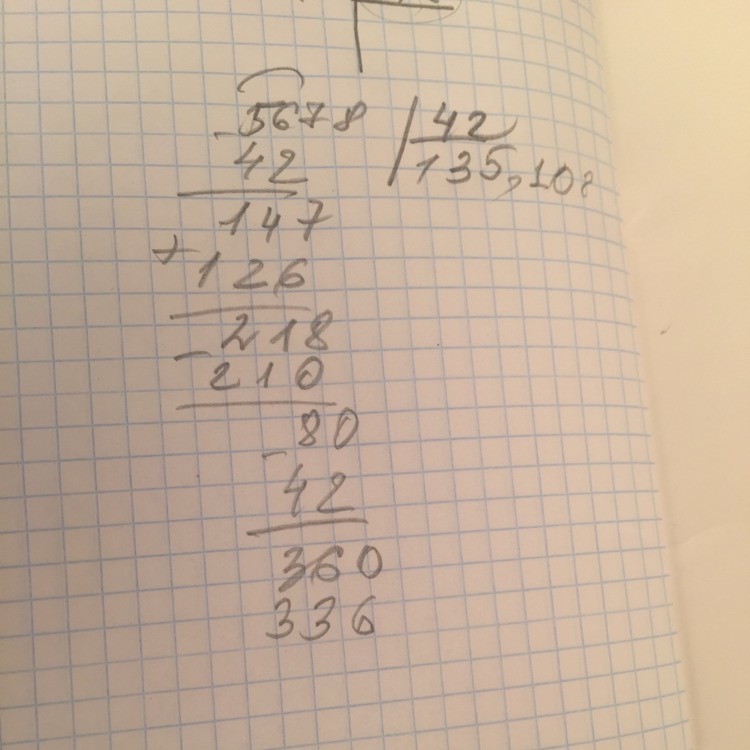 5678 | 42
- 42
135,108
147
+ 126
218
- 210
80
- 42
360
336